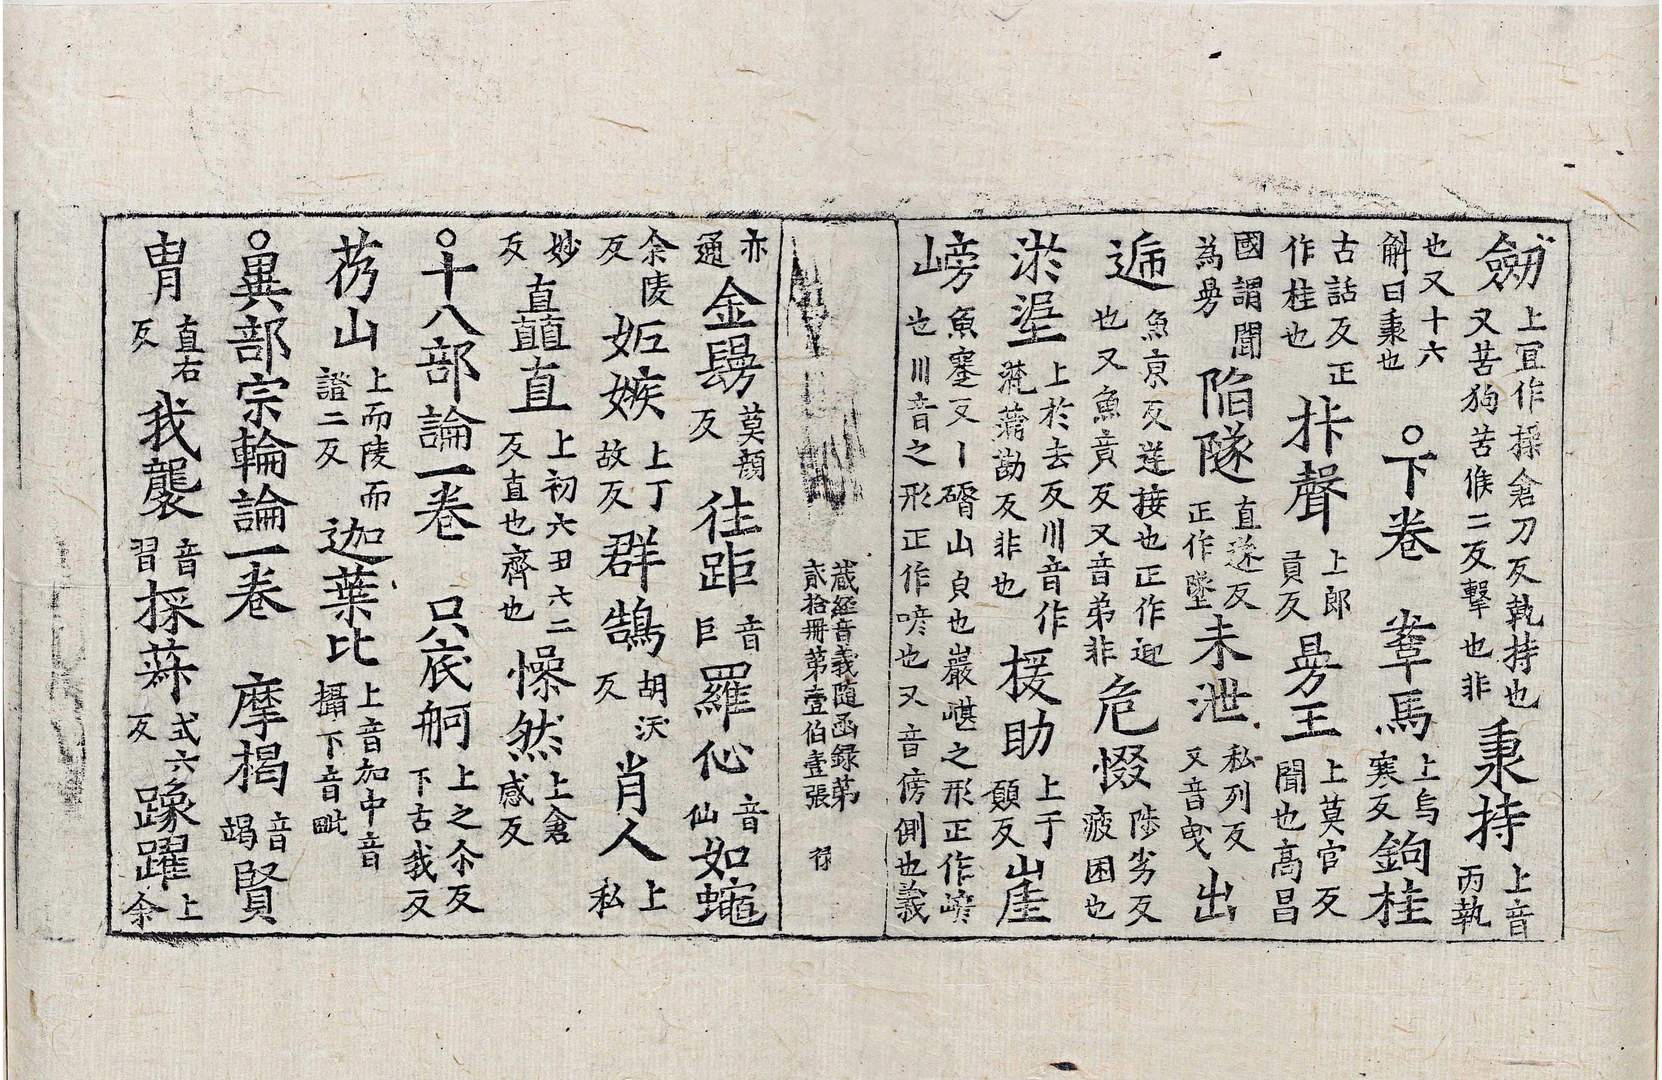 劒上宜作操倉刀反執持也又苦狗苦候二反擊也非秉持上音丙執
也又十六斛曰秉也○下卷鞌馬上烏寒反鉤桂
古話反正作桂也㧊聲上郎貢反昮王上莫官反聞也高昌
國謂聞為昮陷隧直遂反正作墜未泄私列反又音曳出
遁魚京反逆接也正作迎也又魚竟反又音弟非危惙陟劣反疲困也
淤𡋯上於去反川音作蒲勘反非也援助上于願反崖
㟧魚蹇反又丨磍山皃也巖㟧之形正作㟧也川音之形正作喭也又音傍側也義
藏經音義随函録第貳拾冊第壹伯壹張 禄
亦通金𩭤莫顔反往距音巨羅伈音仙如蠅
余陵反妬嫉上丁故反群鵠胡沃反肖人上私
妙反直矗直上初六丑六二反直也齊也懆然上倉感反
○十八部論一卷只底舸上之尒反下古我反
芿山上而陵而證二反迦葉比上音加中音攝下音毗
○異部宗輪論一卷摩楬音竭賢
冑直右反我襲音習採菽式六反躁躍上余